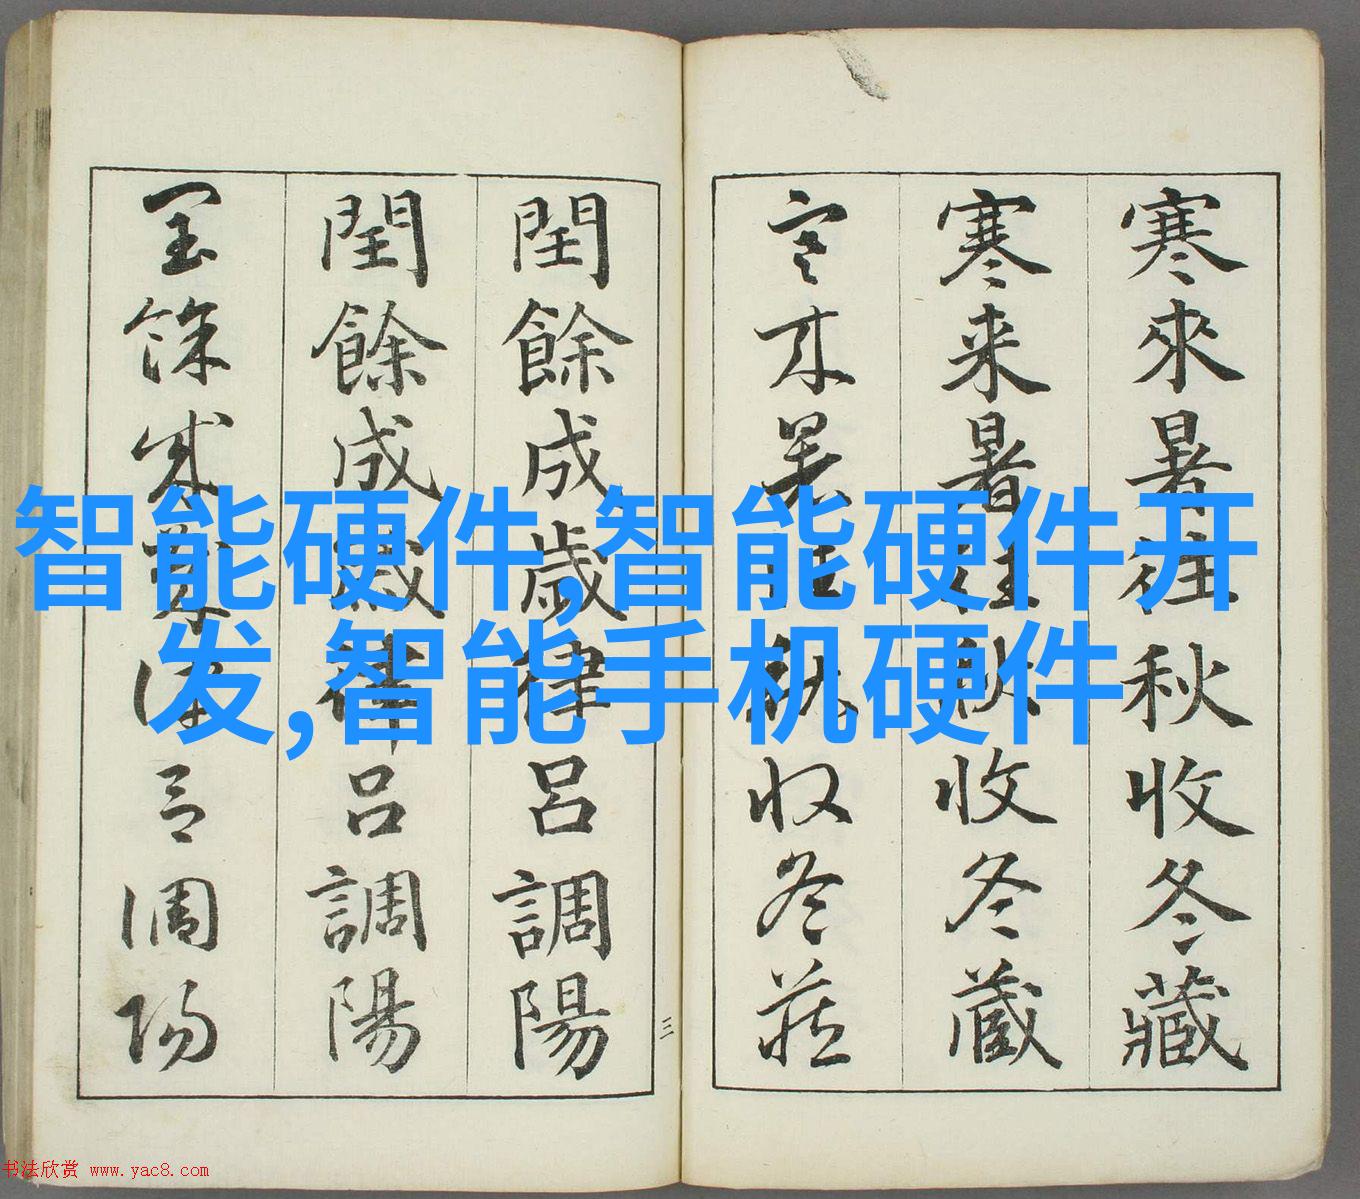 寒來暑往秋收冬藏
寒来暑往秋收冬蔵
寒来暑往秋收冬藏
三
閏餘成歲律呂調陽
閏餘成歲律呂調陽
閏餘成歲律呂調陽
智能硬件,智能硬件开
发,智能手机硬件
书法欣赏 www.yac8.com